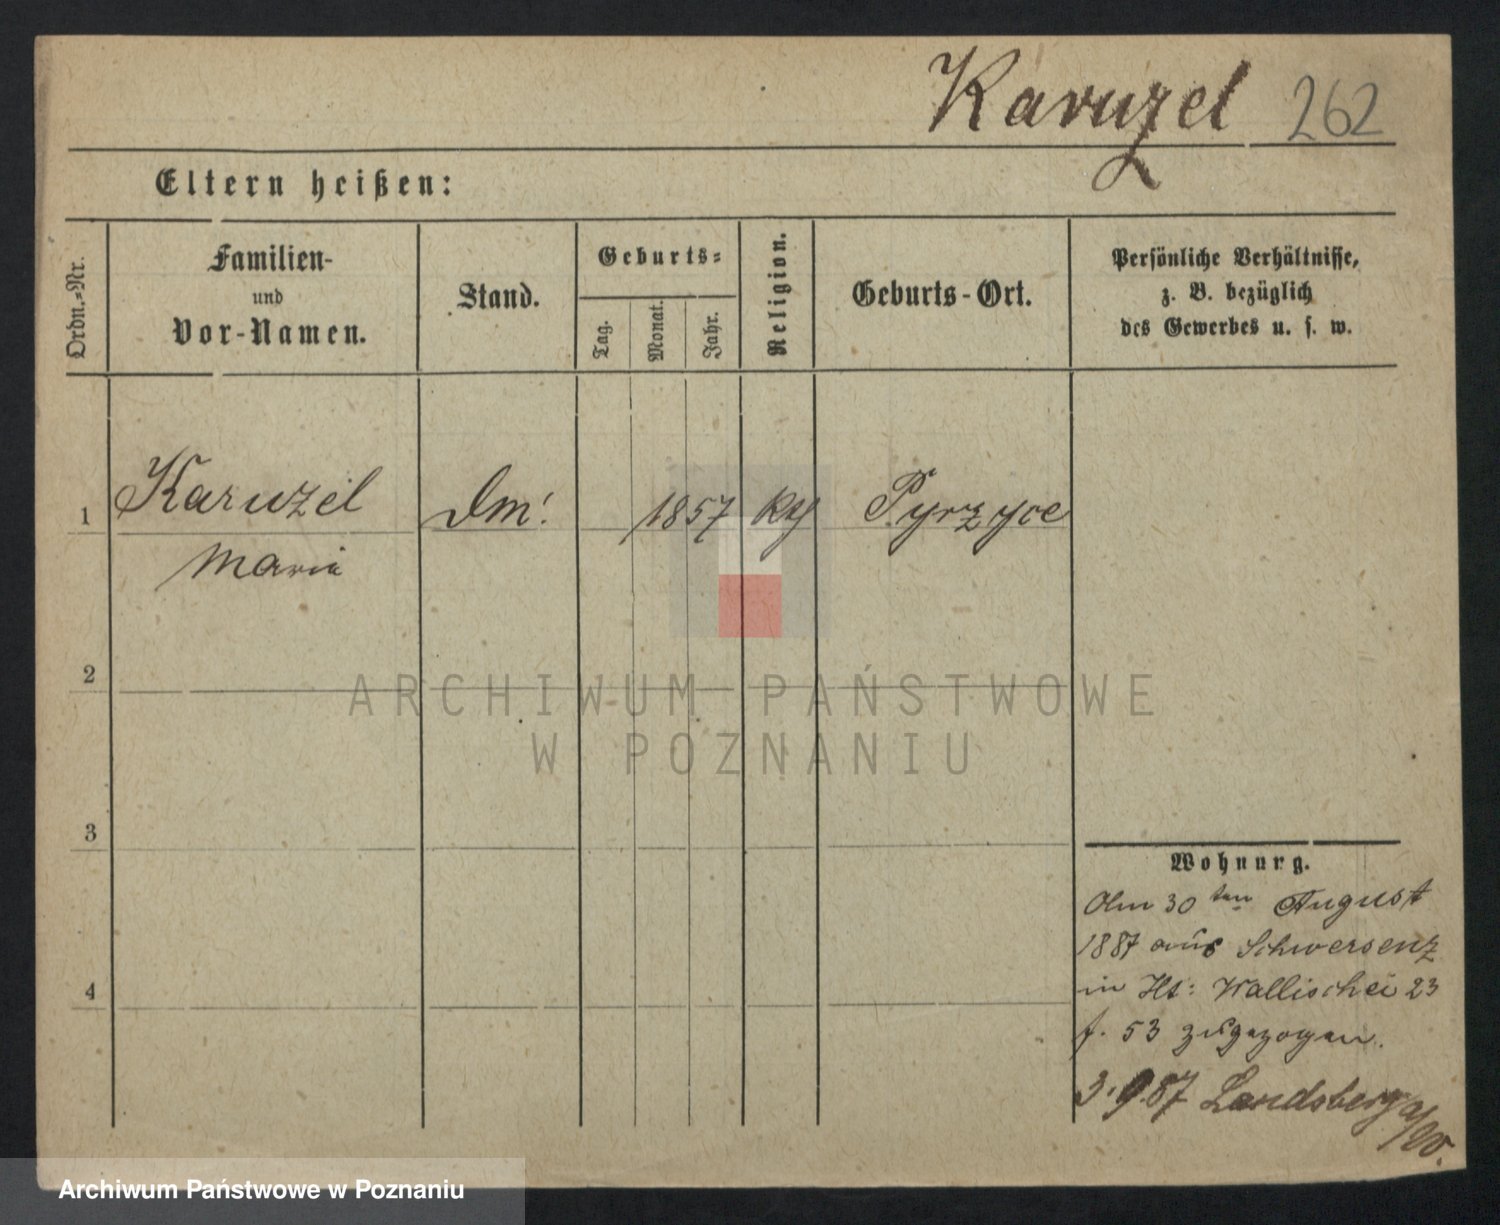 Karuzel 262
Eltern heißen:
Ordn.=Nr.
Familien-
und
Vor-Namen.
Stand.
Geburts=
Tag.
Monat.
Jahr.
Religion.
Geburts-Ort.
Persönliche Verhältnisse,
z. B. bezüglich
des Gewerbes u. s. w.
1 Karuzel 1857 Pyrzyce
Maria
2
3
4
Wohnung.
Am 30 ten August
1887 aus Schwersenz
in Ht: Wallischei 23
f. 53 zugezogen.
3.9.87 Landsberg a/W.
ARCHIWUM PAŃSTWOWE
W POZNANIU
Archiwum Państwowe w Poznaniu